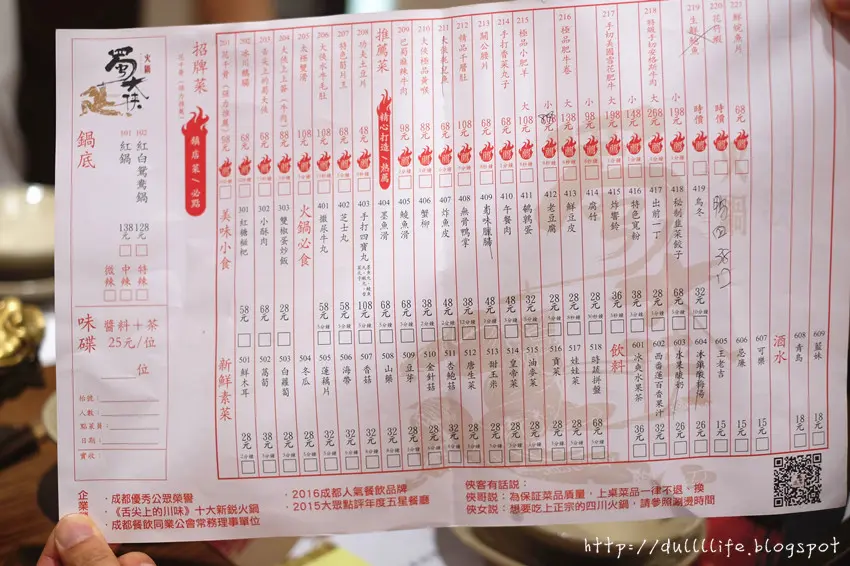 火鍋
蜀大俠
鍋底
101 紅鍋 138元
102 紅白鴛鴦鍋 128元
微辣 中辣 特辣
味碟
醬料+茶
25元/位
位
枱號：
人數：
點菜員：
日期：
實收：
招牌菜
鎮店菜/必點
201 花千骨（強力推薦） 98元
202 冰川鵝腸 68元
203 舌尖上的蜀大俠 68元
204 大俠上上簽（牛肉） 88元
205 極雙滑 108元
206 大俠水牛毛肚 108元
207 特色筍片王 68元
208 功夫土豆片 48元
推薦菜
精心打造/熱薦
209 巴蜀麻辣牛肉 98元
210 大俠極品黃喉 88元
211 大俠耗兒魚 68元
212 精品千層肚 108元
213 關公腰片 68元
214 手打香菜丸子 68元
215 極品小肥羊 大 108元 小
216 極品肥牛卷 大 138元 小 98元
217 手切美國雪花肥牛 大 198元 小 148元
218 特級手切安格斯牛肉 大 268元 小 198元
219 生鮮鮑魚 時價
220 花竹蝦 時價
221 鮮脘魚片 68元
美味小食
301 紅糖糍粑 58元
302 小酥肉 68元
303 雙椒蛋炒飯 28元
火鍋必食
401 撒尿牛丸 58元
402 芝士丸 58元
403 手打四寶丸 108元
404 墨魚滑 68元
405 鯪魚滑 68元
406 蟹柳 38元
407 炸魚皮 48元
408 無骨鴨掌 38元
409 鹵味臘腸 48元
410 午餐肉 48元
411 鵪鶉蛋 32元
412 老豆腐 28元
413 鮮豆皮 28元
414 腐竹 28元
415 炸響鈴 36元
416 特色寬粉 38元
417 出前一丁 28元
418 秘制韭菜餃子 68元
419 烏冬 32元
新鮮素菜
501 鮮木耳 28元
502 萵筍 38元
503 白蘿蔔 28元
504 冬瓜 28元
505 蓮藕片 32元
506 海帶 32元
507 香菇 32元
508 山藥 38元
509 豆芽 28元
510 金針菇 28元
511 杏鮑菇 32元
512 唐生菜 28元
513 甜玉米 28元
514 皇帝菜 28元
515 油麥菜 28元
516 貢菜
517 娃娃菜 28元
518 時蔬拼盤 68元
飲料
601 冰爽水果茶 36元
602 西番蓮百香果汁 32元
603 水果酸奶 26元
604 冰鎮酸梅湯 26元
605 王老吉 15元
606 忌廉 15元
607 可樂 15元
酒水
608 青島 18元
609 藍妹 18元
企業榮譽
·成都優秀公眾榮譽
·《舌尖上的川味》十大新銳火鍋
·成都餐飲同業公會常務理事單位
·2016成都人氣餐飲品牌
·2015大眾點評年度五星餐廳
俠客有話說：
俠哥說：為保証菜品質量，上桌菜品一律不退、換
俠女說：想要吃上正宗的四川火鍋，請參照涮燙時間
http://dullllife.blogspot